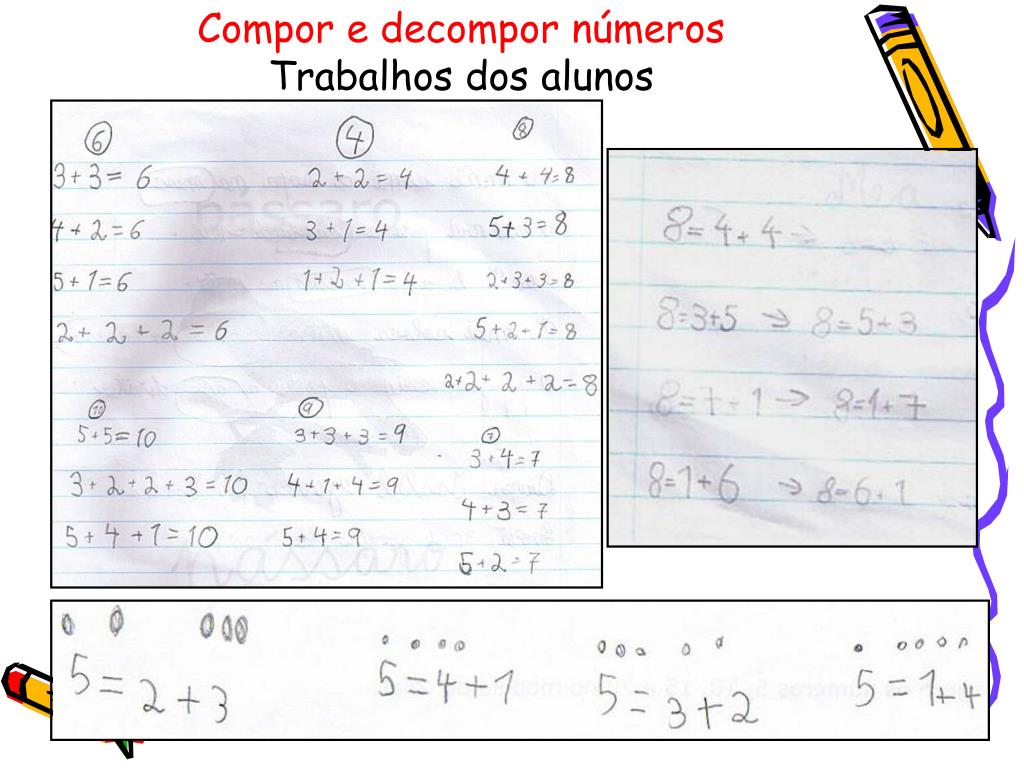 Compor e decompor números
Trabalhos dos alunos
6
3+3= 6
4+2=6
5+1=6
2+2+2=6
4
2+2=4
3+1=4
1+2+1=4
8
4+4=8
5+3=8
2+3+3=8
5+2+1=8
2+2+2+2=8
10
5+5=10
3+2+2+3=10
5+4+1=10
9
3+3+3=9
4+1+4=9
5+4=9
7
3+4=7
4+3=7
5+2=7
8=4+4
8=3+5 → 8=5+3
8=7+1 → 8=1+7
8=1+6 → 8=6+1
5=2+3
5=4+1
5=3+2
5=1+4